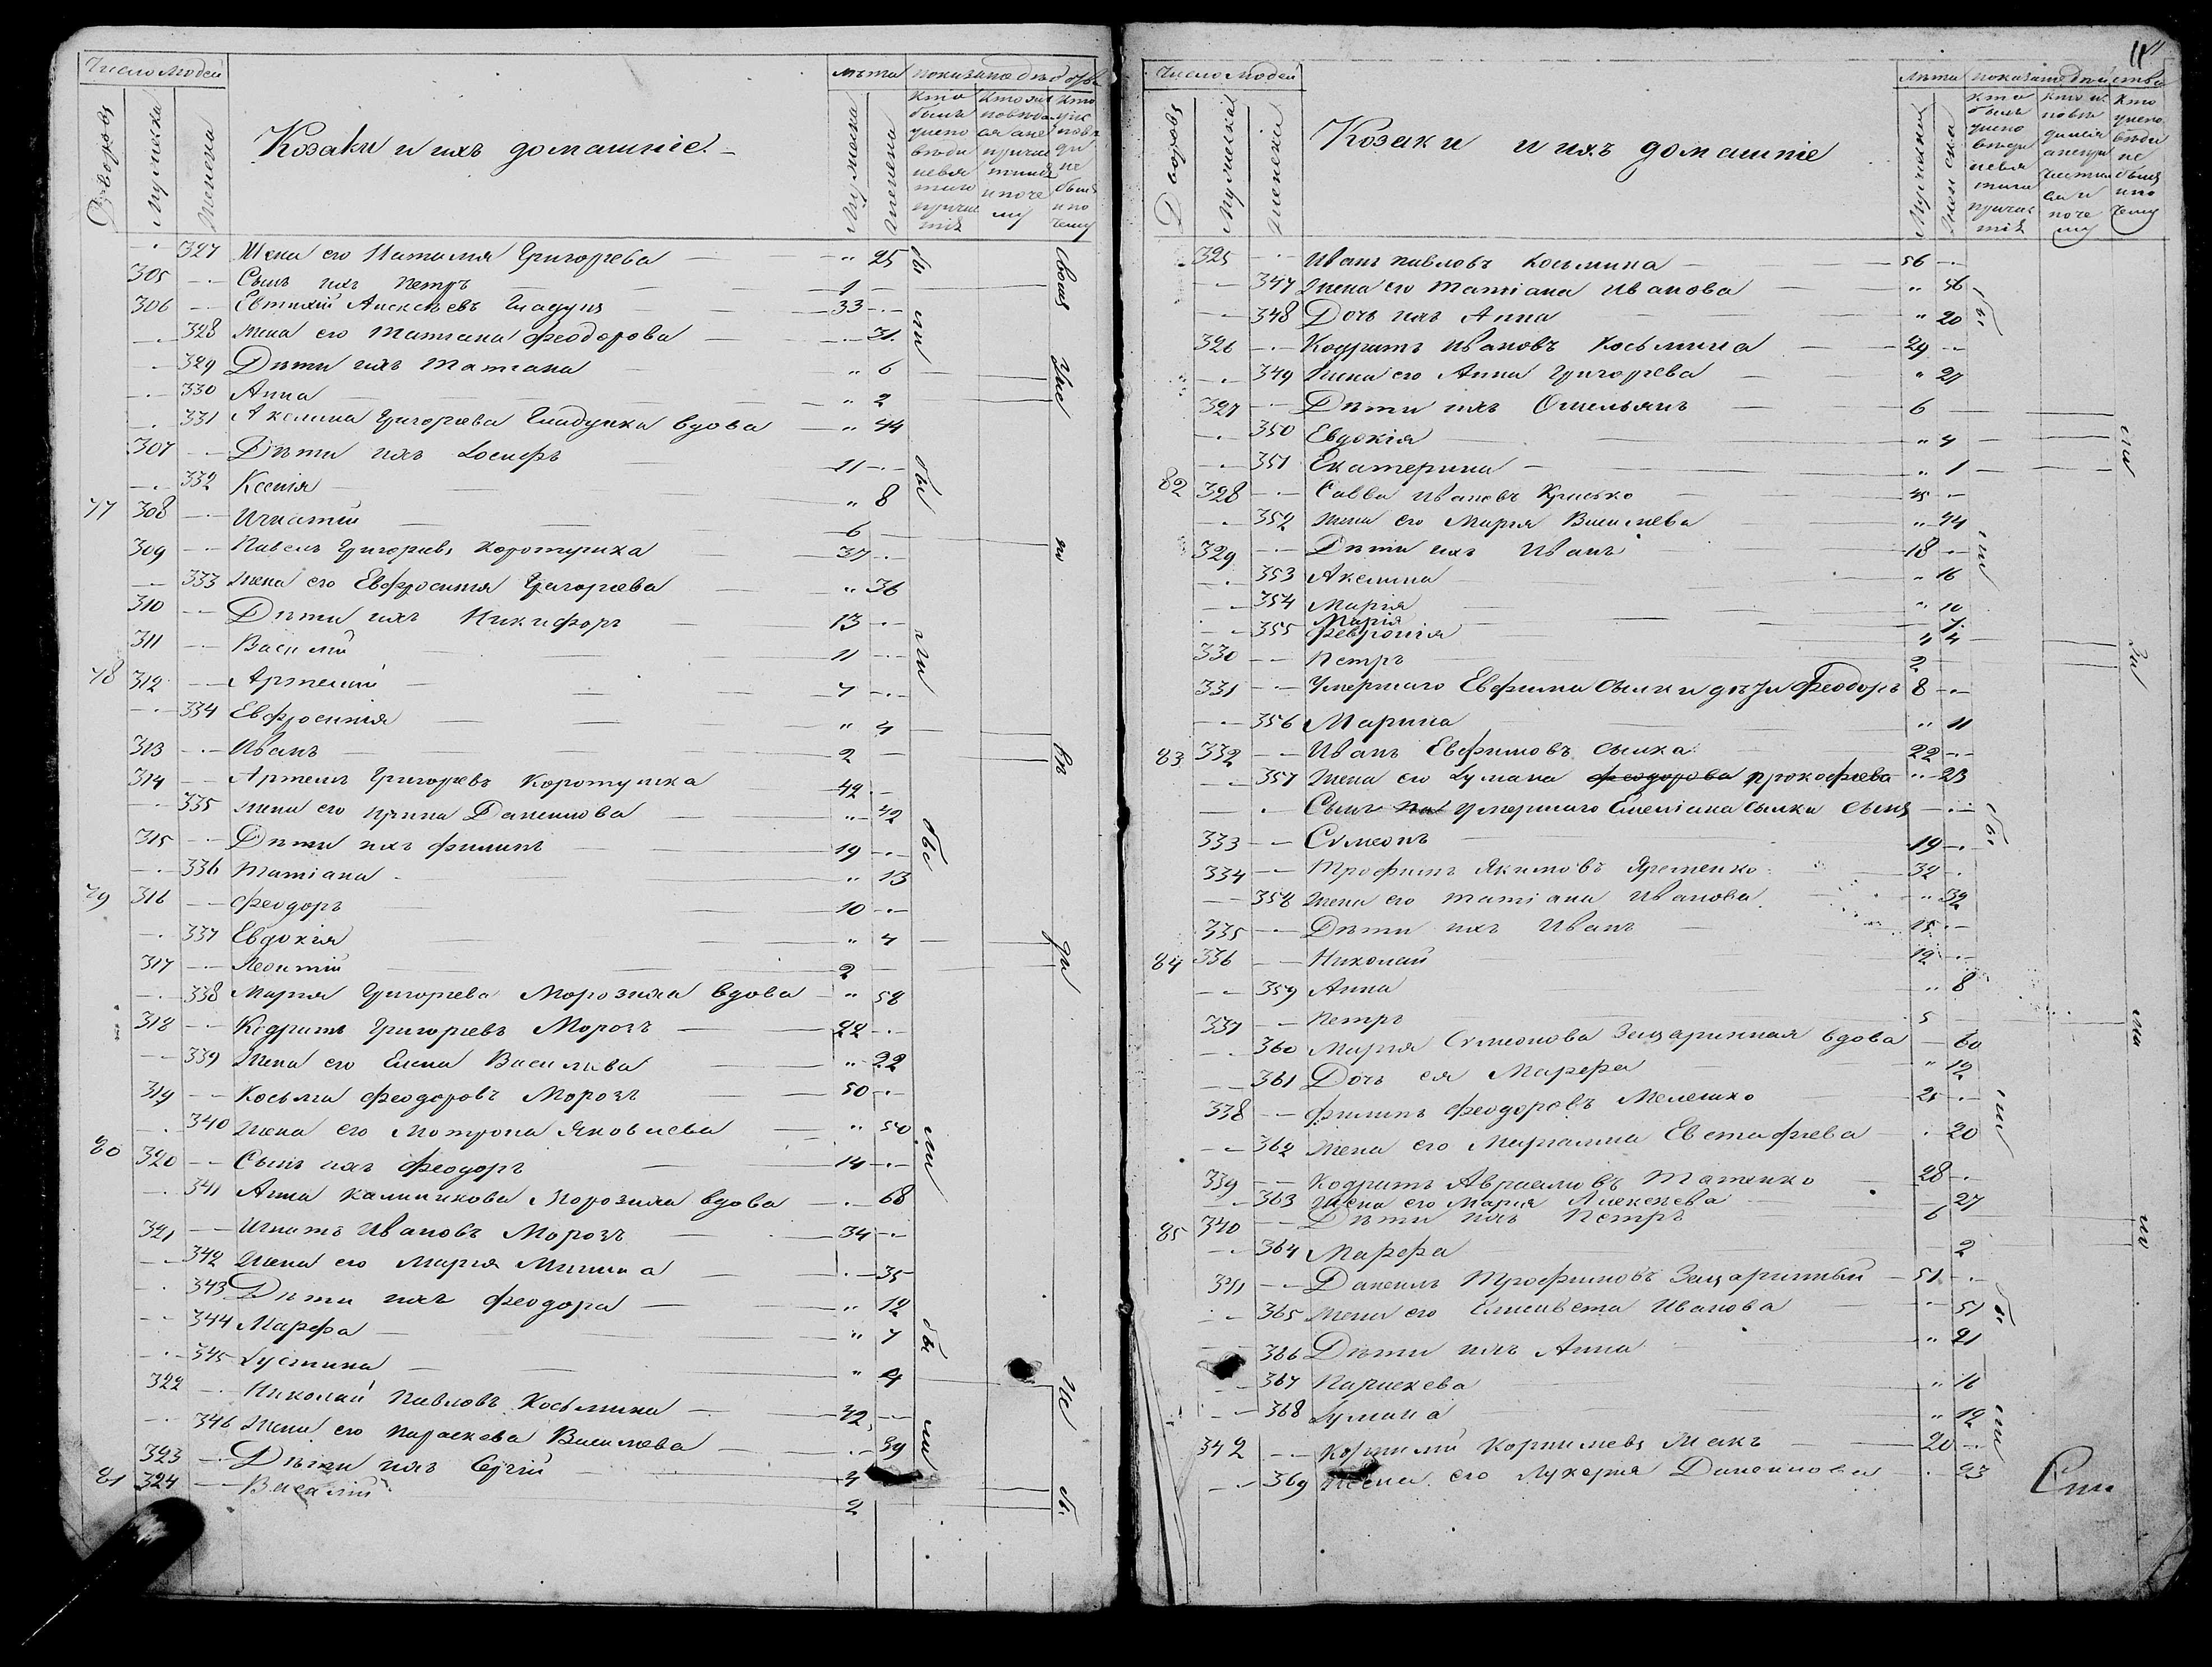 Число людей
Дворовъ
Мужеска
Женска
Козаки и ихъ домашніе.
лѣта
Мужеска
Женска
показаніе дѣйства
кто былъ у исповѣди и святаго причастія
327 Жена его Наталія Григорьева 25
305 Сынъ ихъ Петръ 1
306 Евтихій Алексѣевъ Гладунъ 33
328 жена его Татіана Феодорова 31
329 Дѣти ихъ Татіана 6
330 Анна 2
331 Акелина Григорьева Гладунка вдова 44
307 Дѣти ихъ Іосифъ 11
332 Ксенія 8
77 308 Игнатій 6
309 Павелъ Григорьевъ Коротушка 37
333 жена его Евфросинія Григорьева 36
310 Дѣти ихъ Никифоръ 13
311 Василій 11
78 312 Артемій 7
334 Евфросинія 4
313 Иванъ 2
314 Артемъ Григорьевъ Коротушка 42
335 жена его Ирина Данеилова 42
315 Дѣти ихъ Филипъ 19
336 Татіана 13
79 316 Феодоръ 10
337 Евдокія 4
317 Леонтій 2
338 Марія Григорьева Морозиха вдова 58
318 Кодратъ Григорьевъ Морозъ 22
339 Жена его Елена Василіева 22
319 Косьма Феодоровъ Морозъ 50
340 Жена его Мотрона Яковлева 50
80 320 Сынъ ихъ Феодоръ 14
341 Анна Калиникова Морозиха вдова 68
321 Игнатъ Ивановъ Морозъ 34
342 Жена его Марія Минина 35
343 Дѣти ихъ Феодора 12
344 Марфа 7
345 Іустина 4
322 Николай Павловъ Косьмина 42
346 Жена его Параскева Василіева 39
323 Дѣти ихъ Сергій
81 324 Василій 2
11
Число людей
Дворовъ
Мужеска
Женска
Козаки и ихъ домашніе
лѣта
показаніе дѣйства
325 Иванъ Павловъ Косьмина 56
347 Жена его Татіана Иванова 56
348 Дочь ихъ Анна 20
326 Кодратъ Ивановъ Косьмина 29
349 Жена его Анна Григорьева 27
327 Дѣти ихъ Омельянъ 6
350 Евдокія 4
351 Екатерина 1
82 328 Савва Ивановъ Крисько 45
352 жена его Марія Василіева 44
329 Дѣти ихъ Иванъ 18
353 Акелина 16
354 Марія 10
Марія 7
355 Феврónія 4
330 Петръ 2
331 Умершаго Евфима Сылки дѣти Феодоръ 8
356 Марина 11
83 332 Иванъ Евфимовъ Сылка 22
357 Жена его Іуліана Феодорова Прокофіева 23
Сынъ умершаго Емеліана Сылки сынъ
333 Сѵмеонъ 19
334 Трофимъ Якимовъ Яременко 32
358 Жена его Татіана Иванова 32
335 Дѣти ихъ Иванъ 15
84 336 Николай 12
359 Анна 8
337 Петръ 5
360 Марія Сѵмеонова Зацаринная вдова 60
361 Дочь ея Марфа 12
338 Филипъ Феодоровъ Мелешко 25
362 Жена его Маріамна Евстафіева 20
339 Кодратъ Авраамовъ Татенко 28
363 Жена его Марія Алексѣева 27
85 340 Дѣти ихъ Петръ 6
364 Марфа 2
341 Данеилъ Трофимовъ Зацаринный 51
365 жена его Елисавета Иванова 51
366 Дѣти ихъ Анна 21
367 Параскева 16
368 Іуліана 12
342 Корнилій Корниліевъ Макъ 20
369 Жена его Лукерія Данеилова 23